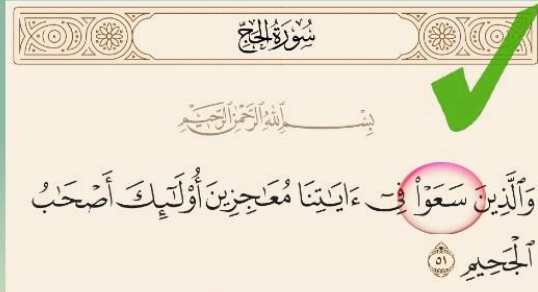 سُورَةُ الحَجِّ
بِسۡمِ ٱللَّهِ ٱلرَّحۡمَٰنِ ٱلرَّحِيمِ
وَٱلَّذِينَ سَعَوۡاْ فِيٓ ءَايَٰتِنَا مُعَٰجِزِينَ أُوْلَٰٓئِكَ أَصۡحَٰبُ
ٱلۡجَحِيمِ ٥١